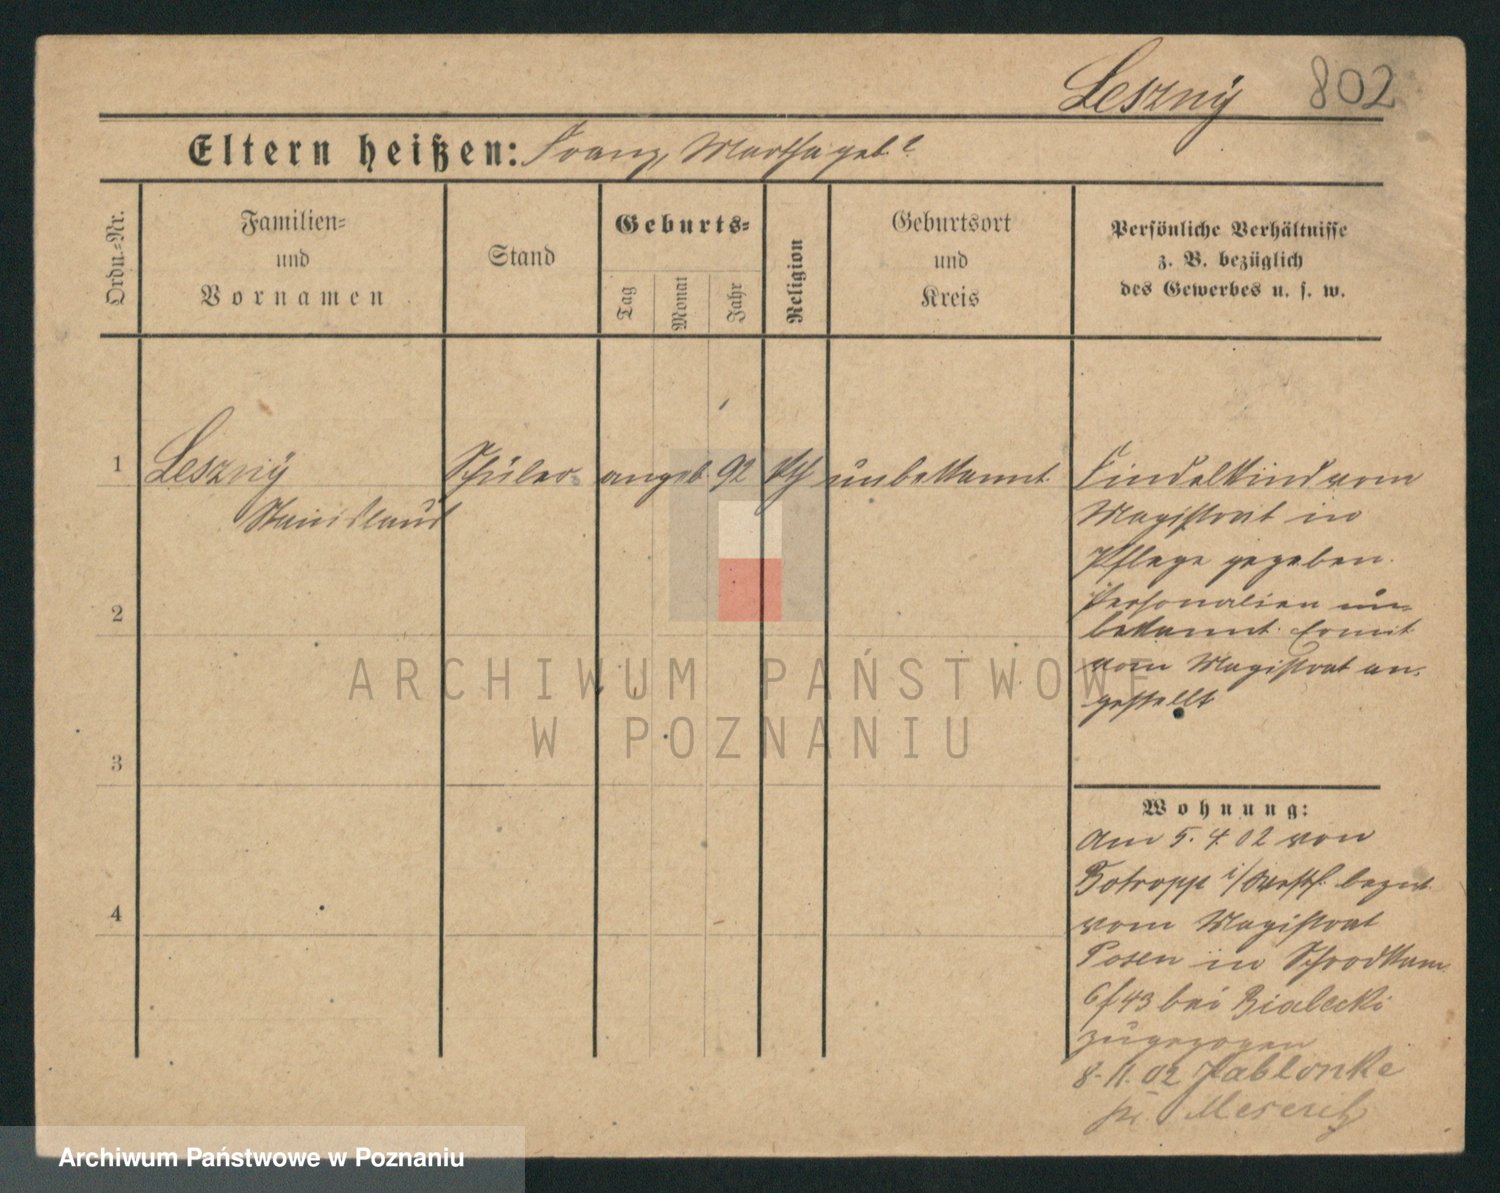 Leszny 802
Eltern heißen: Franz, Martha geb. ?
Ordn.=Nr.
Familien=
und
Vornamen
Stand
Geburts=
Tag
Monat
Jahr
Religion
Geburtsort
und
Kreis
Persönliche Verhältnisse
z. B. bezüglich
des Gewerbes u. s. w.
1 Leszny Schüler angeb. 92 kth unbekannt
Stanislaus
Findelkind vom
Magistrat in
Pflege gegeben.
Personalien un=
bekannt.
vom Magistrat an=
gestellt
2
3
4
ARCHIWUM PAŃSTWOWE
W POZNANIU
Wohnung:
Am 5. 4. 02 von
Botropp i/Westf. bezw.
vom Magistrat
Posen in
6/43 bei Bialecki
zugezogen
8. 11. 02 Jablonke
Meseritz
Archiwum Państwowe w Poznaniu